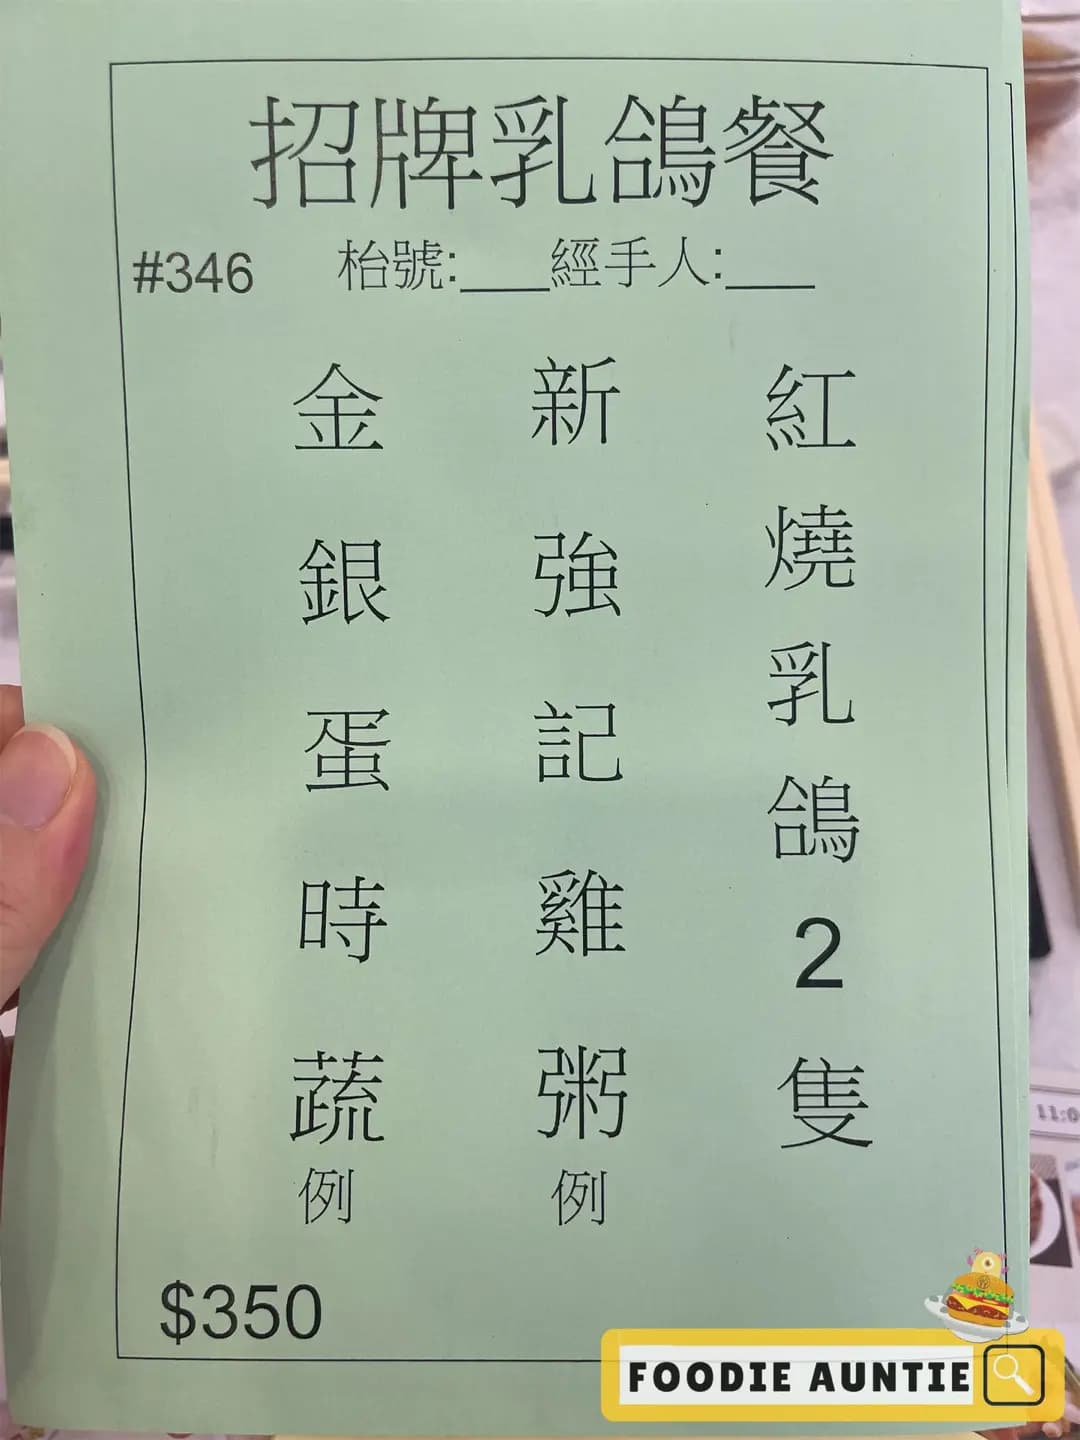 招牌乳鴿餐
#346 枱號:___經手人:___
紅燒乳鴿2隻
新強記雞粥例
金銀蛋時蔬例
$350
11:0
FOODIE AUNTIE